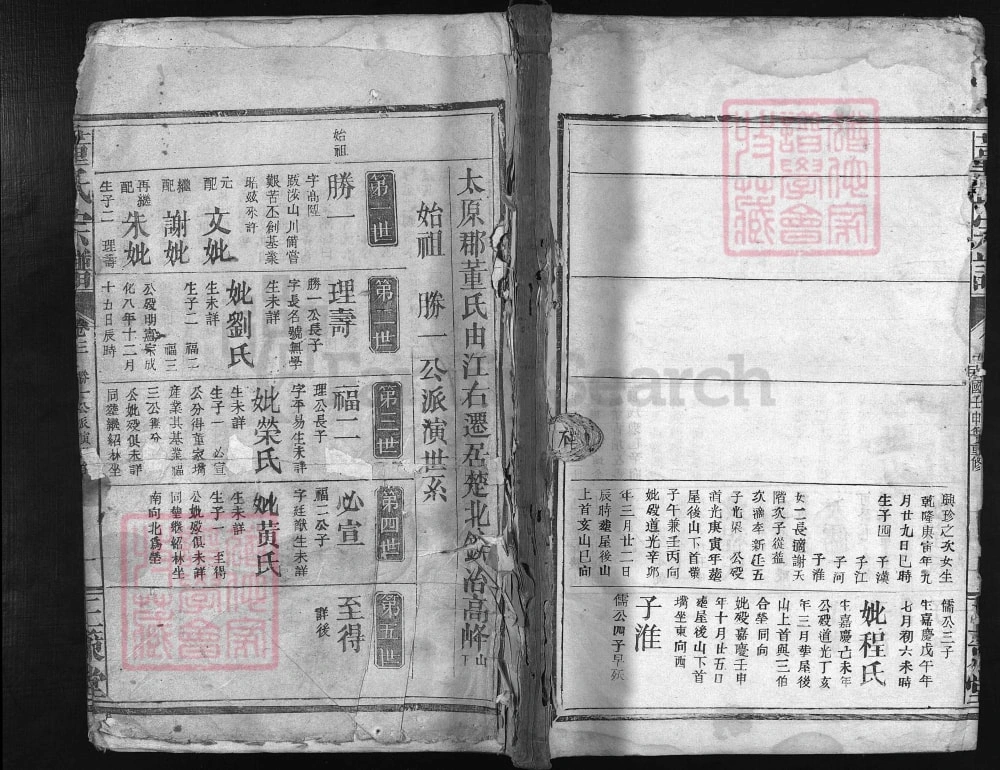 興珍之次女生
乾隆庚寅年九
月廿九日巳時
生子四 子漢
子江
子河
子淮
女二長適謝天
階次子從益
次適李新廷五
子光
公歿
道光庚寅年塟
屋後山下首
子午兼壬丙向
妣歿道光辛卯
年三月廿二日
辰時塟屋後山
上首亥山巳向
儒公三子
生嘉慶戊午年
七月初六未時
妣程氏
生嘉慶己未年
公歿道光丁亥
年三月塟屋後
山上首與三伯
合塋同向
妣歿嘉慶壬申
年十月廿五日
塟屋後山下首
坐東向西
子淮
儒公四子早歿
太原郡董氏由江右遷居楚北鐵冶高峰山下
始祖 勝一公派演世系
第一世
第二世
第三世
第四世
第五世
始祖
勝一
字高陞
跋涉山川備嘗
艱苦丕創基業
生歿未詳
元配 文妣
繼配 謝妣
再繼配 朱妣
生子二 理壽
理壽
勝一公長子
字長名號無學
生未詳
妣劉氏
生未詳
生子二 福二
福三
公歿明憲宗成
化八年十二月
十五日辰時
福二
理公長子
字平易生未詳
妣榮氏
生未詳
生子一 必宣
公分得董家塆
產業其基業福
三公無分
公妣歿俱未詳
同塟繼紹林坐
必宣
福二公子
字廷猷生未詳
妣黃氏
生未詳
生子一 至得
公妣歿俱未詳
同塟繼紹林坐
南向北為塋
至得
詳後
董氏宗譜
卷三
三策堂